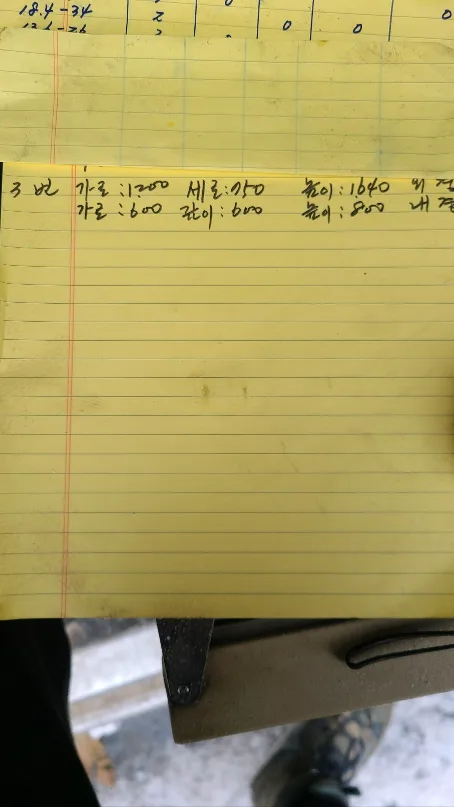 18.4-34 2 0
0 0
3번 가로:1200 세로:750 높이:1640 외경
가로:600 깊이:600 높이:800 내경